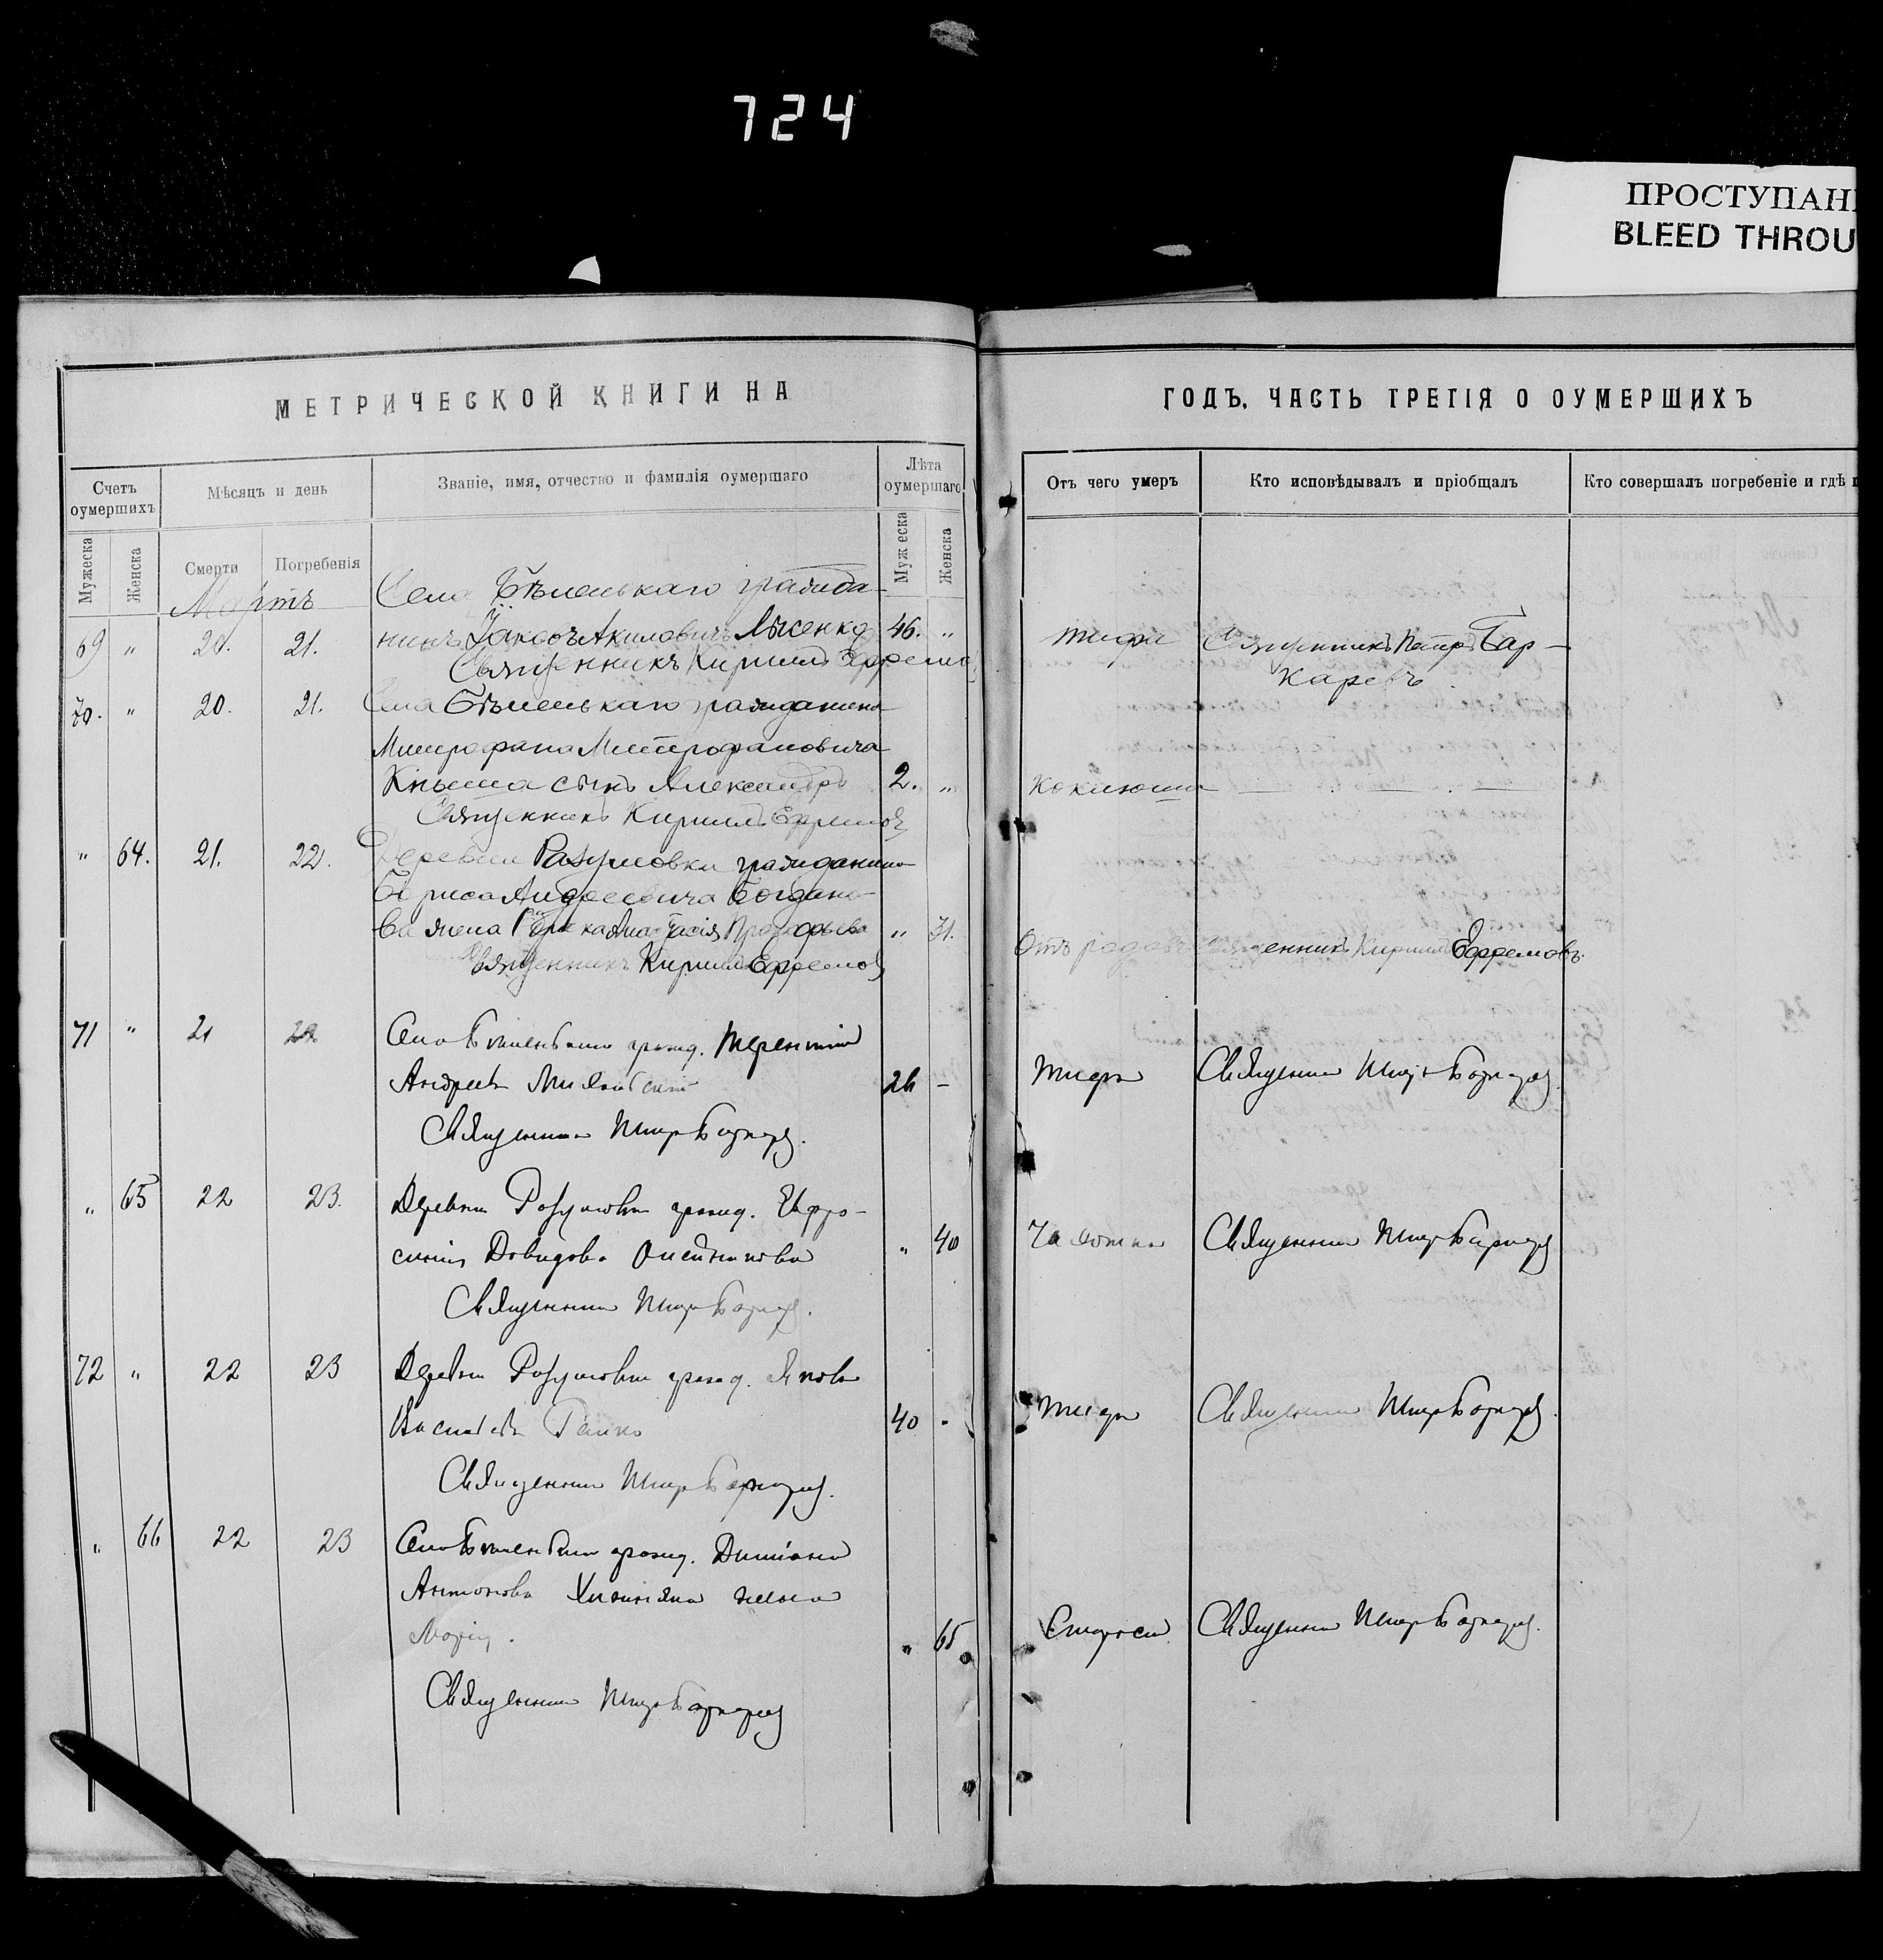 724
ПРОСТУПАН
BLEED THROU
МЕТРИЧЕСКОЙ КНИГИ НА
ГОДЪ, ЧАСТЬ ТРЕТІЯ О ОУМЕРШИХЪ
Счетъ оумершихъ
Мѣсяцъ и день
Званіе, имя, отчество и фамилія оумершаго
Лѣта оумершаго
Отъ чего умеръ
Кто исповѣдывалъ и пріобщалъ
Кто совершалъ погребеніе и гдѣ
Мужеска
Женска
Смерти
Погребенія
Муж еска
Женска
Мартъ
Села Бѣленькаго гражда-
69 " 20. 21. нинъ Іаковъ Акиловичъ Лысенко 46. " тифа Священникъ Петръ Бар-
Священникъ Кириллъ Ефремовъ
каревъ
70. " 20. 21. Села Бѣленькаго гражданина
Митрофана Митрофановича
сынъ Александръ 2. " коклюша
Священникъ Кириллъ Ефремовъ
" 64. 21. 22. Деревни Разумовки гражданина
Бориса Андреевича Богдано-
ва жена Анастасія " 31. Отъ родовъ Священникъ Кириллъ Ефремовъ.
Священникъ Кириллъ Ефремовъ
71 " 21 22 Села Бѣленькаго гражд. Терентій
Андреевъ 26 - Тифа Священникъ Петръ Баркаревъ
Священникъ Петръ Баркаревъ.
" 65 22 23. Деревни Разумовки гражд. Евфро-
синія Давидова " 40 Чахотка Священникъ Петръ Баркаревъ
Священникъ Петръ Баркаревъ.
72 " 22 23 Деревни Разумовки гражд. Яковъ
Васильевъ 40 - Тифа Священникъ Петръ Баркаревъ.
Священникъ Петръ Баркаревъ.
" 66 22 23 Села Бѣленькаго гражд.
Антонова жена
Марія. " 65 Старости Священникъ Петръ Баркаревъ.
Священникъ Петръ Баркаревъ